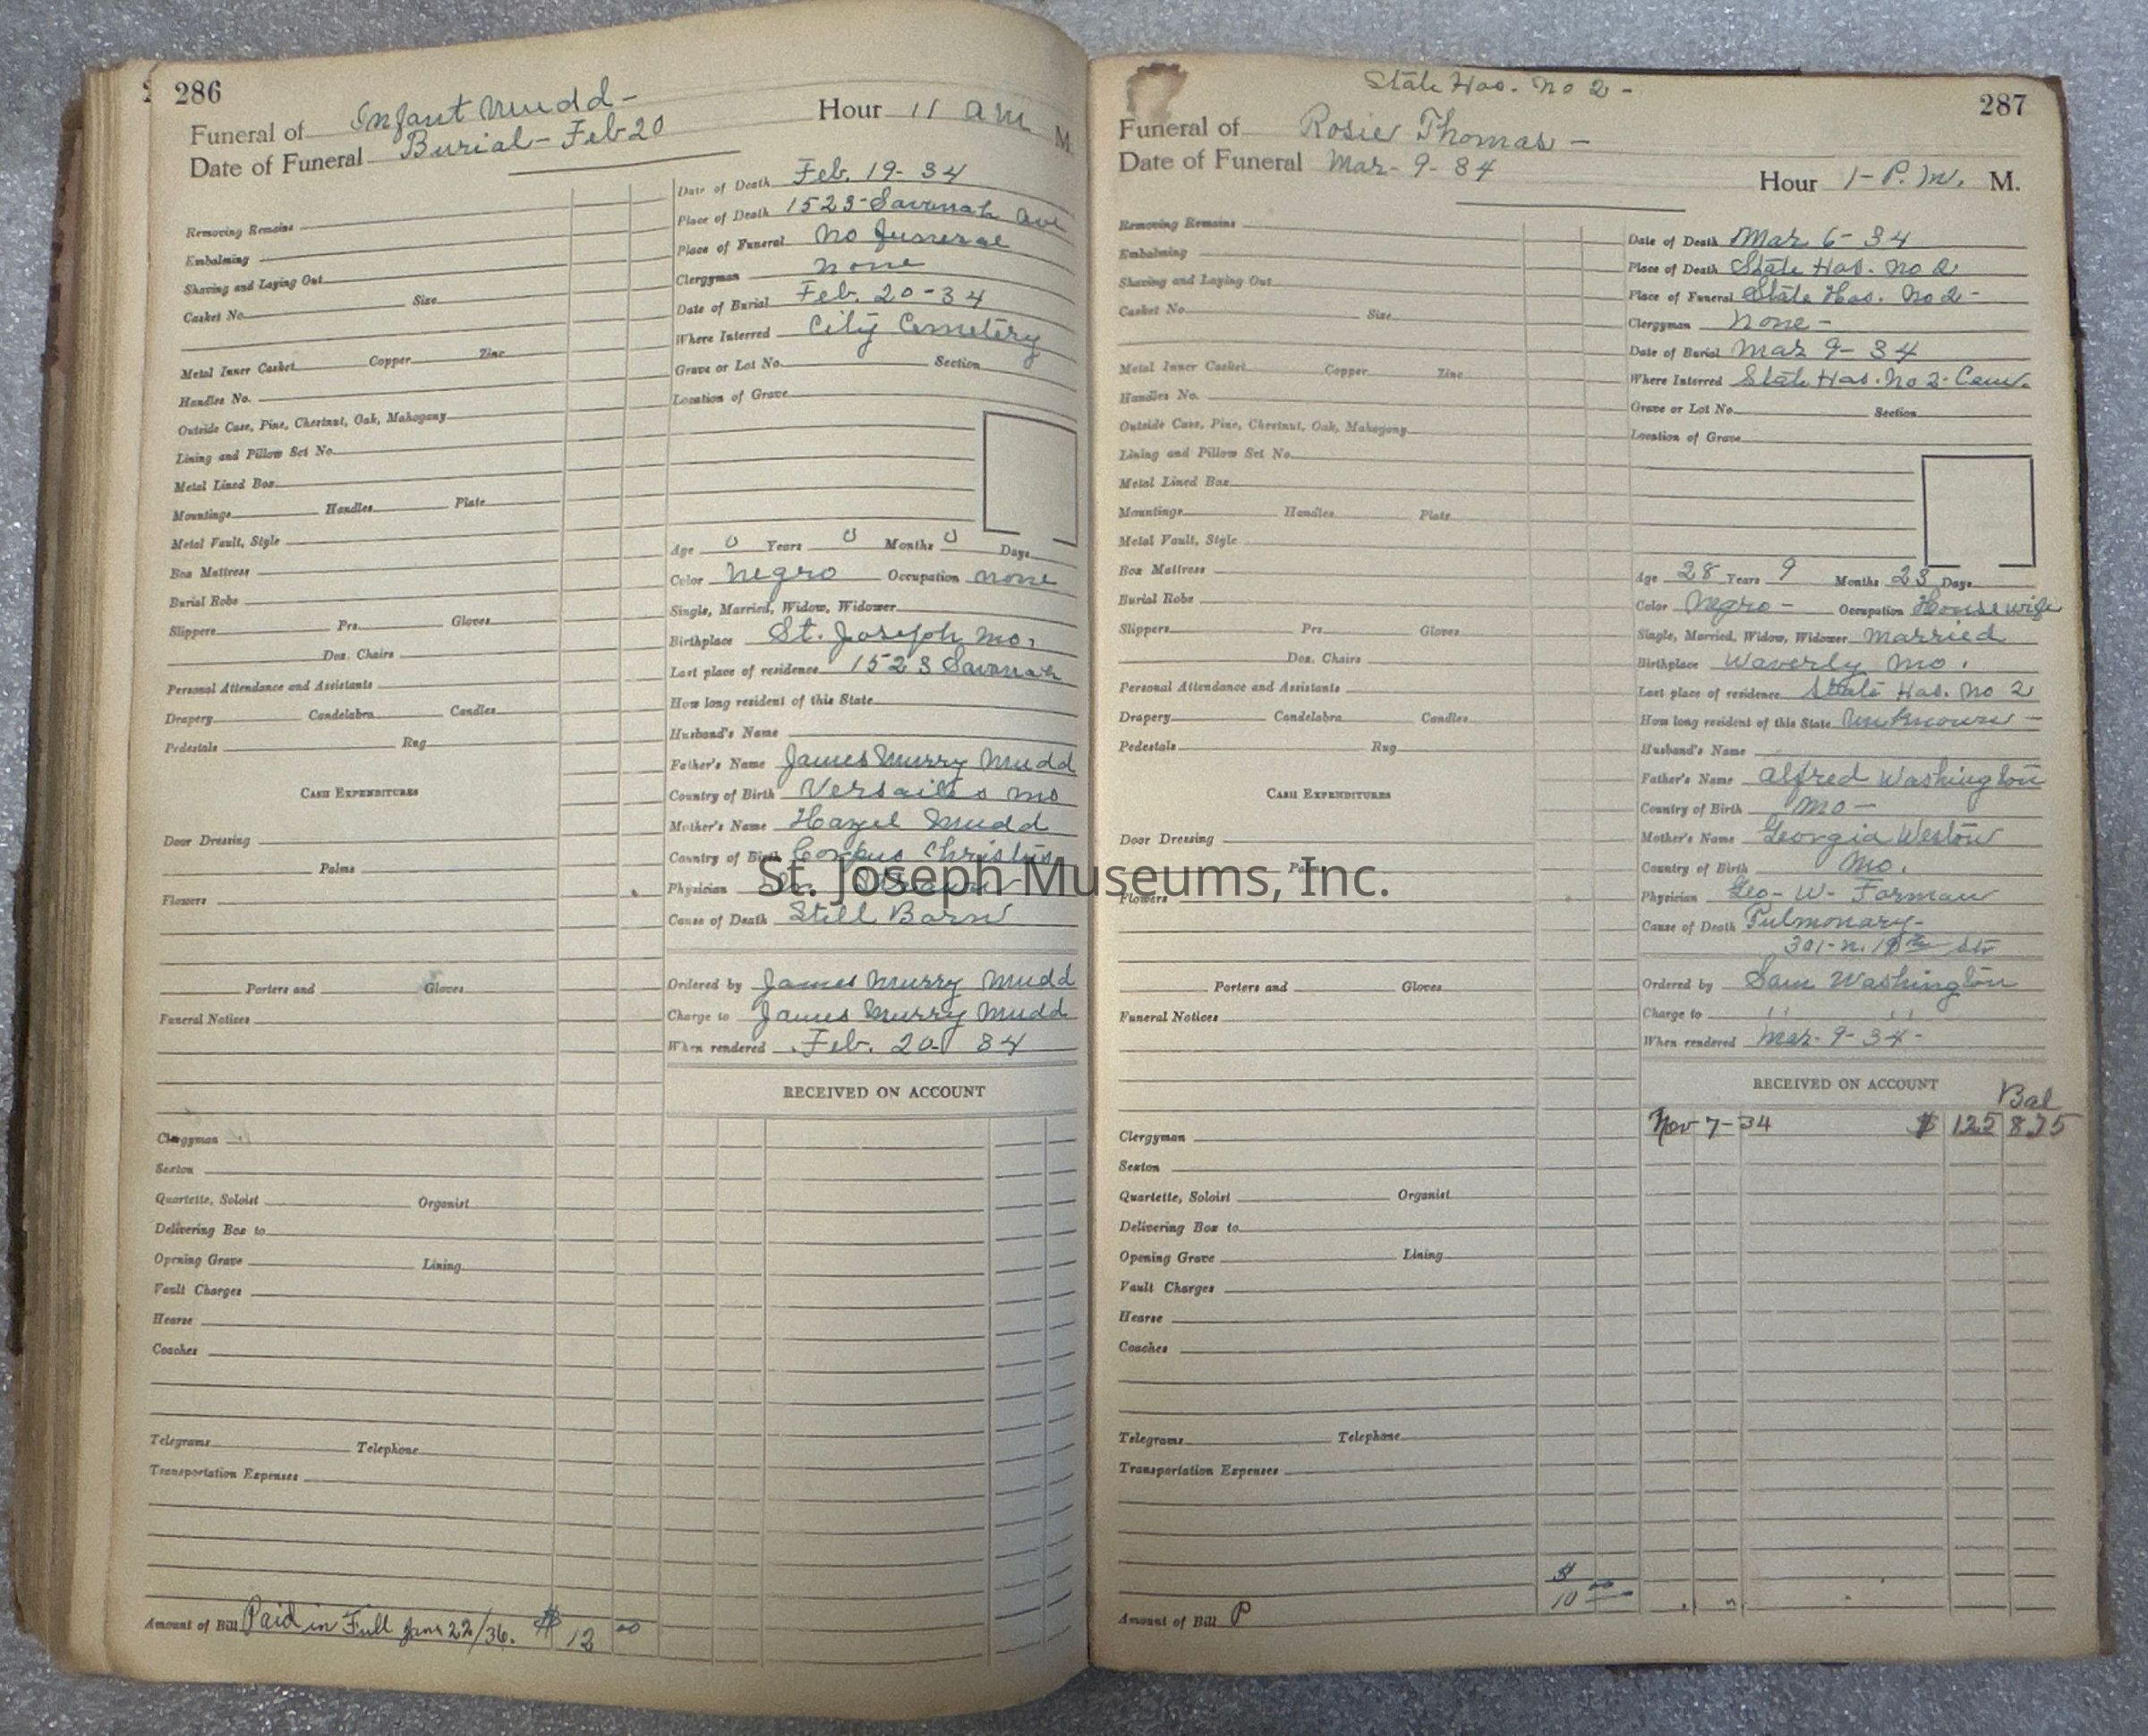 286
Funeral of Infant Mudd - Hour 11 am M.
Date of Funeral Burial - Feb 20
Removing Remains
Embalming
Shaving and Laying Out
Casket No. Size
Metal Inner Casket Copper Zinc
Handles No.
Outside Case, Pine, Chestnut, Oak, Mahogany
Lining and Pillow Set No.
Metal Lined Box
Mountings Handles Plate
Metal Vault, Style
Box Mattress
Burial Robe
Slippers Prs. Gloves
Doz. Chairs
Personal Attendance and Assistants
Drapery Candelabra Candles
Pedestals Rug
CASH EXPENDITURES
Door Dressing
Palms
Flowers
Porters and Gloves
Funeral Notices
Clergyman
Sexton
Quartette, Soloist Organist
Delivering Box to
Opening Grave Lining
Vault Charges
Hearse
Coaches
Telegrams Telephone
Transportation Expenses
Amount of Bill Paid in Full Jan 22/36. $ 12 00
Date of Death Feb. 19-34
Place of Death 1523-Savanah Ave
Place of Funeral No Funeral
Clergyman none
Date of Burial Feb. 20-34
Where Interred City Cemetery
Grave or Lot No. Section
Location of Grave
Age 0 Years 0 Months 0 Days
Color negro Occupation none
Single, Married, Widow, Widower
Birthplace St. Joseph Mo.
Last place of residence 1523 Savanah
How long resident of this State
Husband's Name
Father's Name James Murry Mudd
Country of Birth Versailes Mo
Mother's Name Hazel Mudd
Country of Birth Corpus Christus
Physician
Cause of Death Still Born
Ordered by James Murry Mudd
Charge to James Murry Mudd
When rendered Feb. 20 34
RECEIVED ON ACCOUNT
State Hos. No 2 -
287
Funeral of Rosie Thomas -
Date of Funeral Mar-9-34 Hour 1-P.M. M.
Removing Remains
Embalming
Shaving and Laying Out
Casket No. Size
Metal Inner Casket Copper Zinc
Handles No.
Outside Case, Pine, Chestnut, Oak, Mahogany
Lining and Pillow Set No.
Metal Lined Box
Mountings Handles Plate
Metal Vault, Style
Box Mattress
Burial Robe
Slippers Prs. Gloves
Doz. Chairs
Personal Attendance and Assistants
Drapery Candelabra Candles
Pedestals Rug
CASH EXPENDITURES
Door Dressing
Palms
Flowers
Porters and Gloves
Funeral Notices
Clergyman
Sexton
Quartette, Soloist Organist
Delivering Box to
Opening Grave Lining
Vault Charges
Hearse
Coaches
Telegrams Telephone
Transportation Expenses
$
10 00
Amount of Bill P
Date of Death Mar 6-34
Place of Death State Hos. No 2
Place of Funeral State Hos. No 2-
Clergyman None -
Date of Burial Mar 9-34
Where Interred State Hos. No 2-Cem.
Grave or Lot No. Section
Location of Grave
Age 28 Years 9 Months 23 Days
Color Negro - Occupation Housewife
Single, Married, Widow, Widower Married
Birthplace Waverly Mo.
Last place of residence State Hos. No 2
How long resident of this State Unknown -
Husband's Name
Father's Name Alfred Washington
Country of Birth Mo -
Mother's Name Georgia Weston
Country of Birth Mo.
Physician Geo- W- Forman
Cause of Death Pulmonary-
301-N. 19th St
Ordered by Sam Washington
Charge to " "
When rendered Mar-9-34-
RECEIVED ON ACCOUNT
Bal
Nov 7-34 $ 125 875
St. Joseph Museums, Inc.